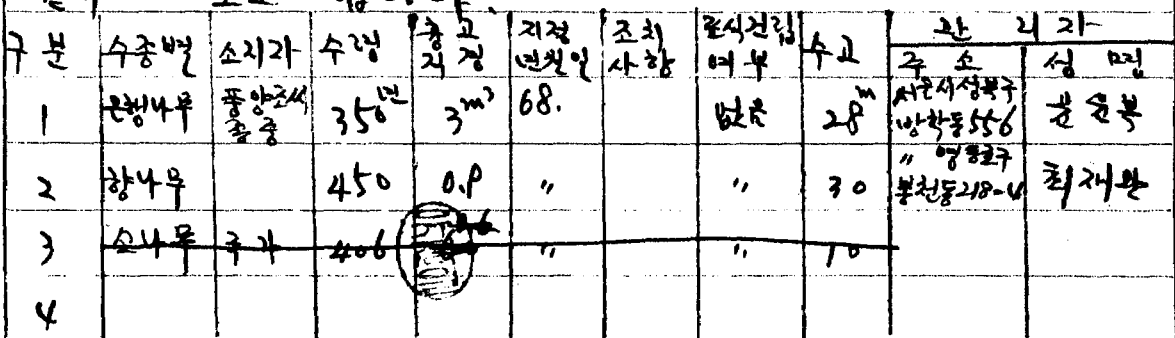 구분 수종별 소지자 수령 흉고직경 지정년월일 조치사항 표식건립여부 수고 관리자
주소 성명
1 은행나무 풍양조씨종중 350년 3m³ 68. 없음 28m 서울시성북구방학동556 윤복
2 향나무 450 0.8 〃 〃 30 〃 영등포구봉천동218-4 최재완
3 소나무 국가 406 〃 〃 10
4